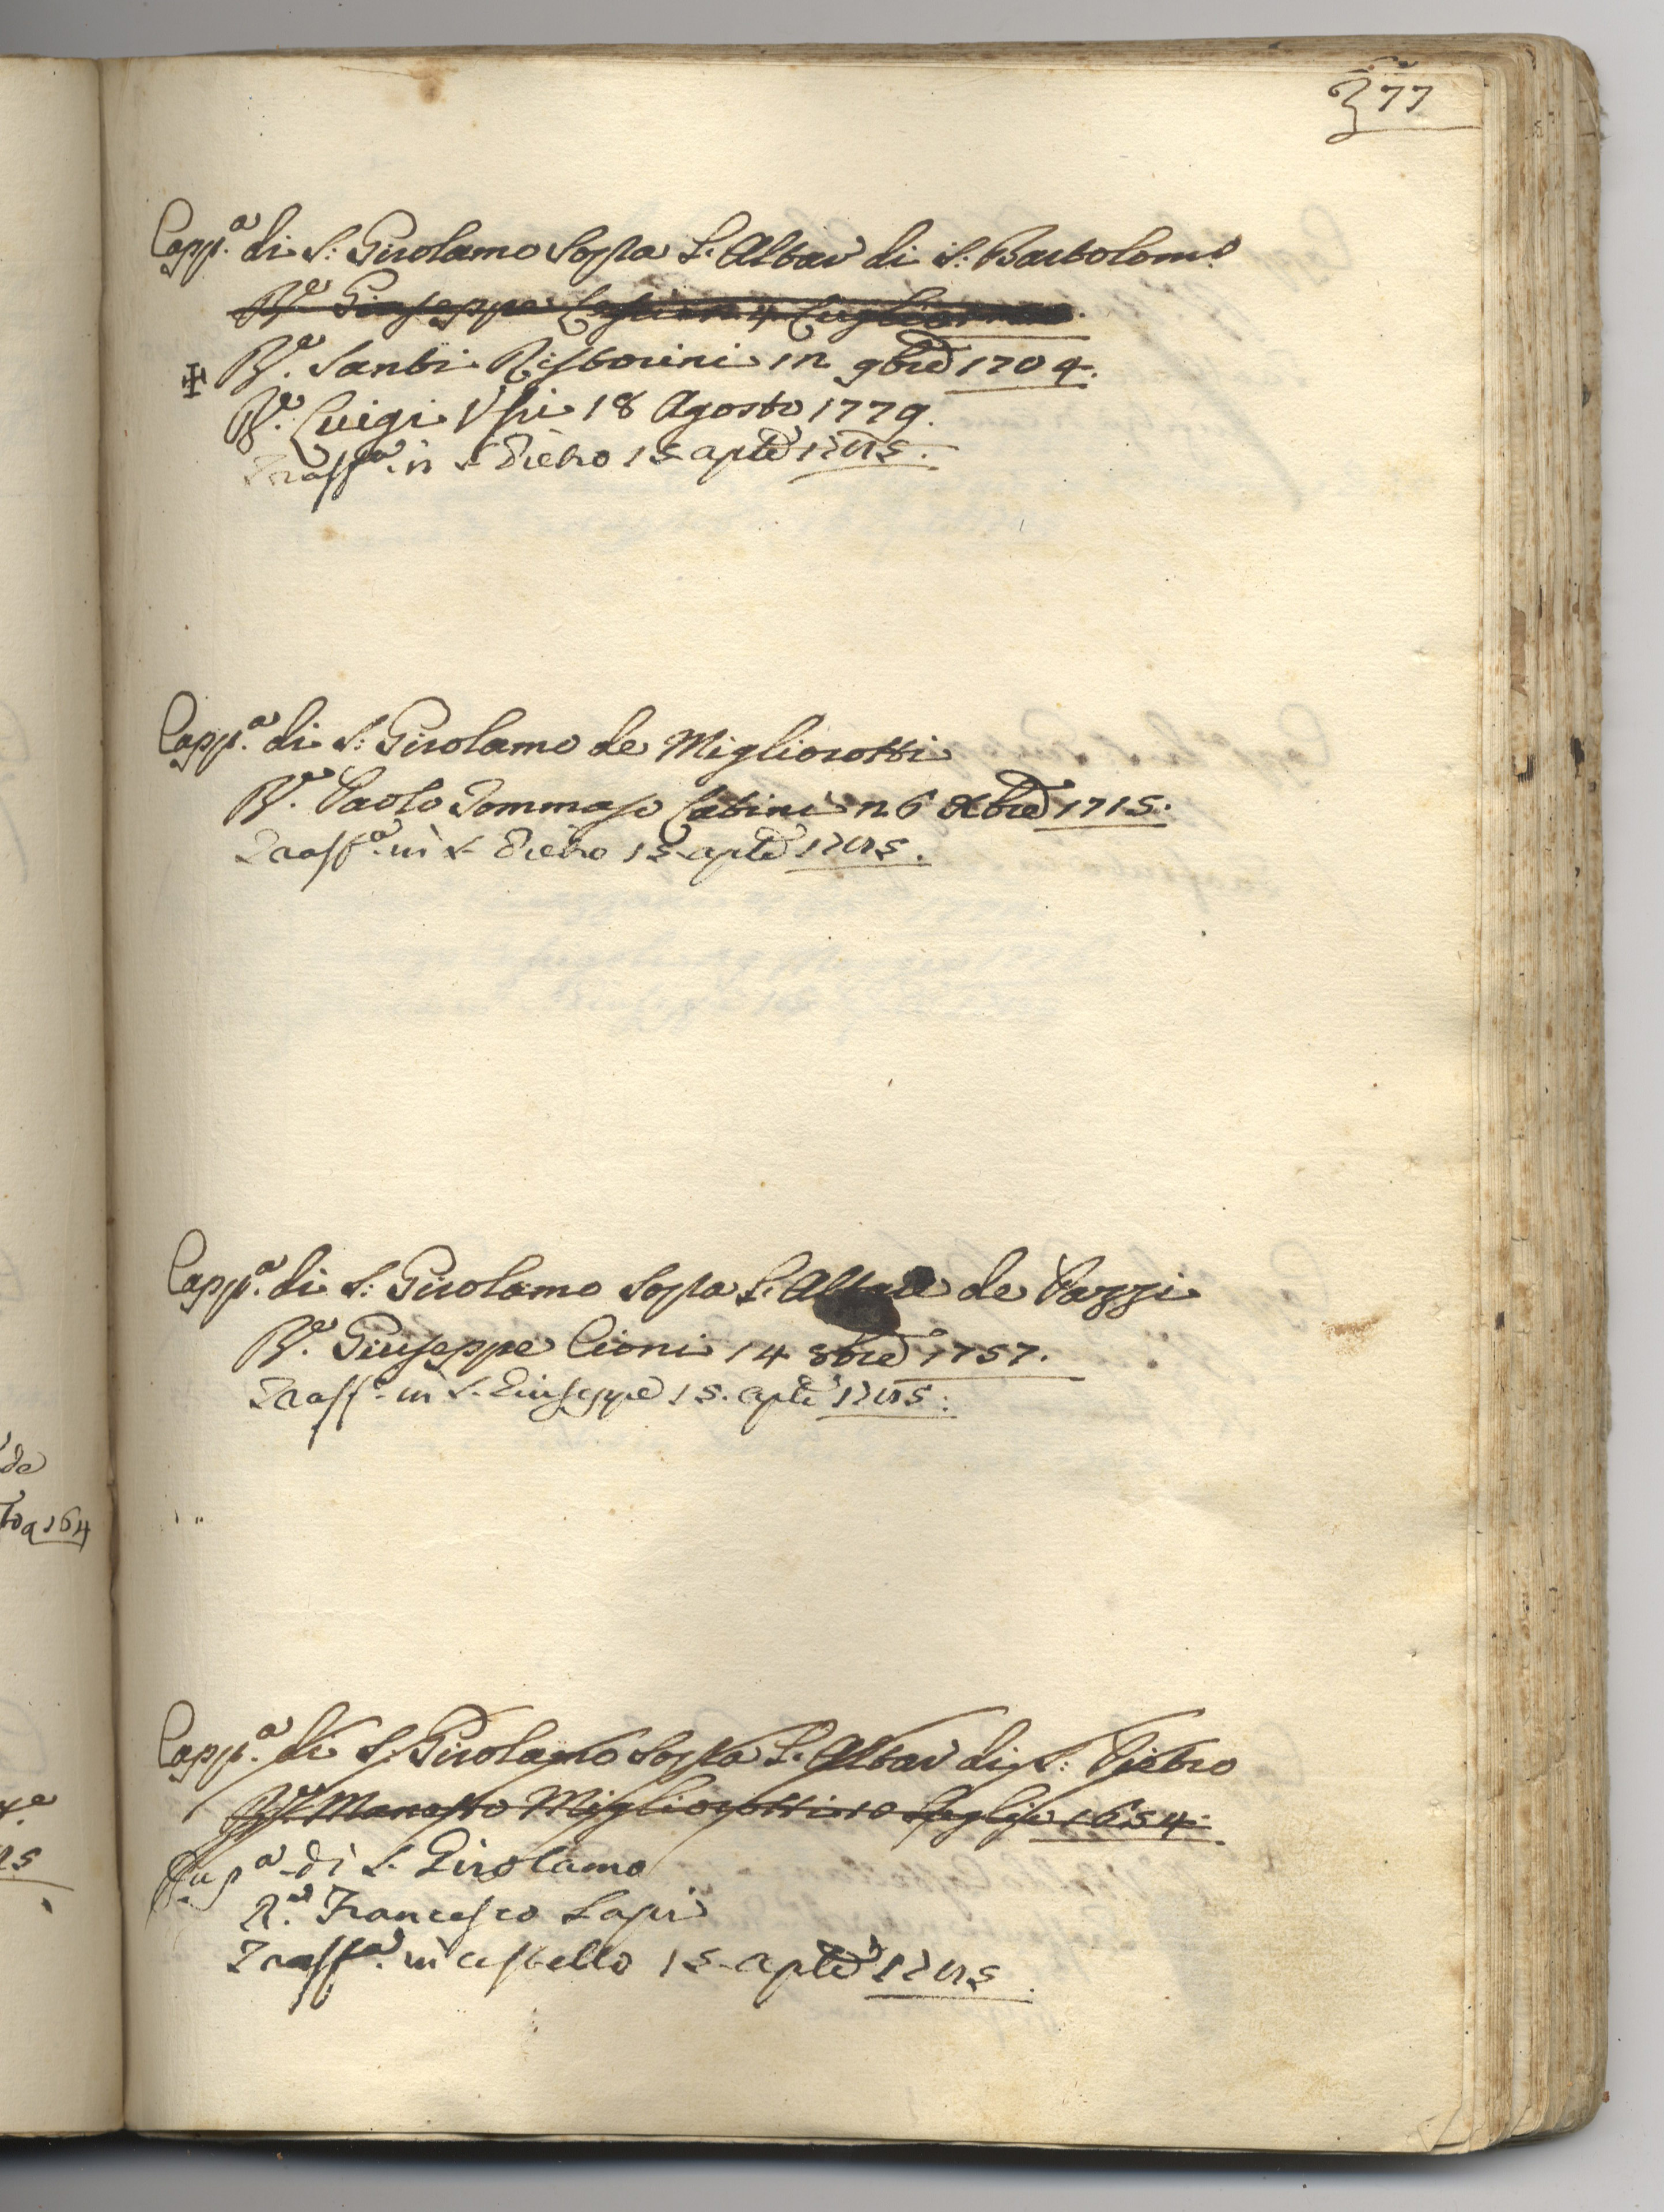 77
Capp.a di S: Girolamo sopra l'Altar di S: Bartolom.o
R.e Giuseppe
R.e Santi Ristorini 12 9bre 1704.
R.e Luigi Vpi 18 Agosto 1779.
Trasf.a in S. Pietro 15 aple 1785.
Capp.a di S: Girolamo de Migliorotti
R.e Paolo Tommaso Catini 26 Xbre 1715.
Trasf.a in S. Pietro 15 aple 1785.
Capp.a di S: Girolamo sopra l'Altare de Pazzi
R.e Giuseppe Cioni 14 8bre 1757.
Trasf.a in S. Giuseppe 15. aple 1785.
Capp.a di S: Girolamo sopra l'Altar di S: Pietro
R.e Migliorotti 10 Luglio 1654.
Cap.a di S. Girolamo
R.e Francesco Lapi
Trasf.a in castello 15 aple 1785
de
164